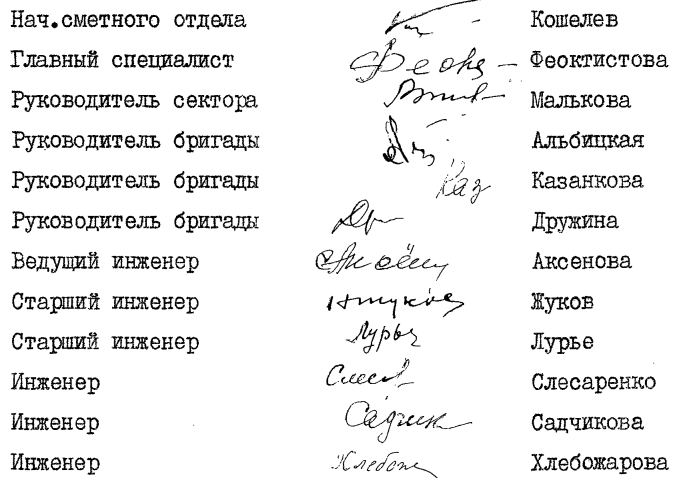 Нач.сметного отдела Кошелев
Главный специалист Феокт Феоктистова
Руководитель сектора Малькова
Руководитель бригады Альбицкая
Руководитель бригады Каз Казанкова
Руководитель бригады Дружина
Ведущий инженер Аксенова
Старший инженер Жуков
Старший инженер Лурье Лурье
Инженер Слесаренко
Инженер Садчик Садчикова
Инженер Хлебож Хлебожарова